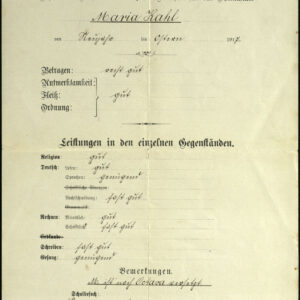 Maria Kahl
von Neujahr bis Ostern 1917.
Betragen: recht gut
Aufmerksamkeit:
Fleiß: gut
Ordnung:
Leistungen in den einzelnen Gegenständen.
Religion gut
Deutsch: Lesen: gut
Sprechen: genügend
Rechtschreibung: fast gut
Rechnen: Mündlich: gut
Schriftlich: fast gut
Erdkunde:
Schreiben: fast gut
Gesang: genügend
Bemerkungen.
ist nach Octava versetzt